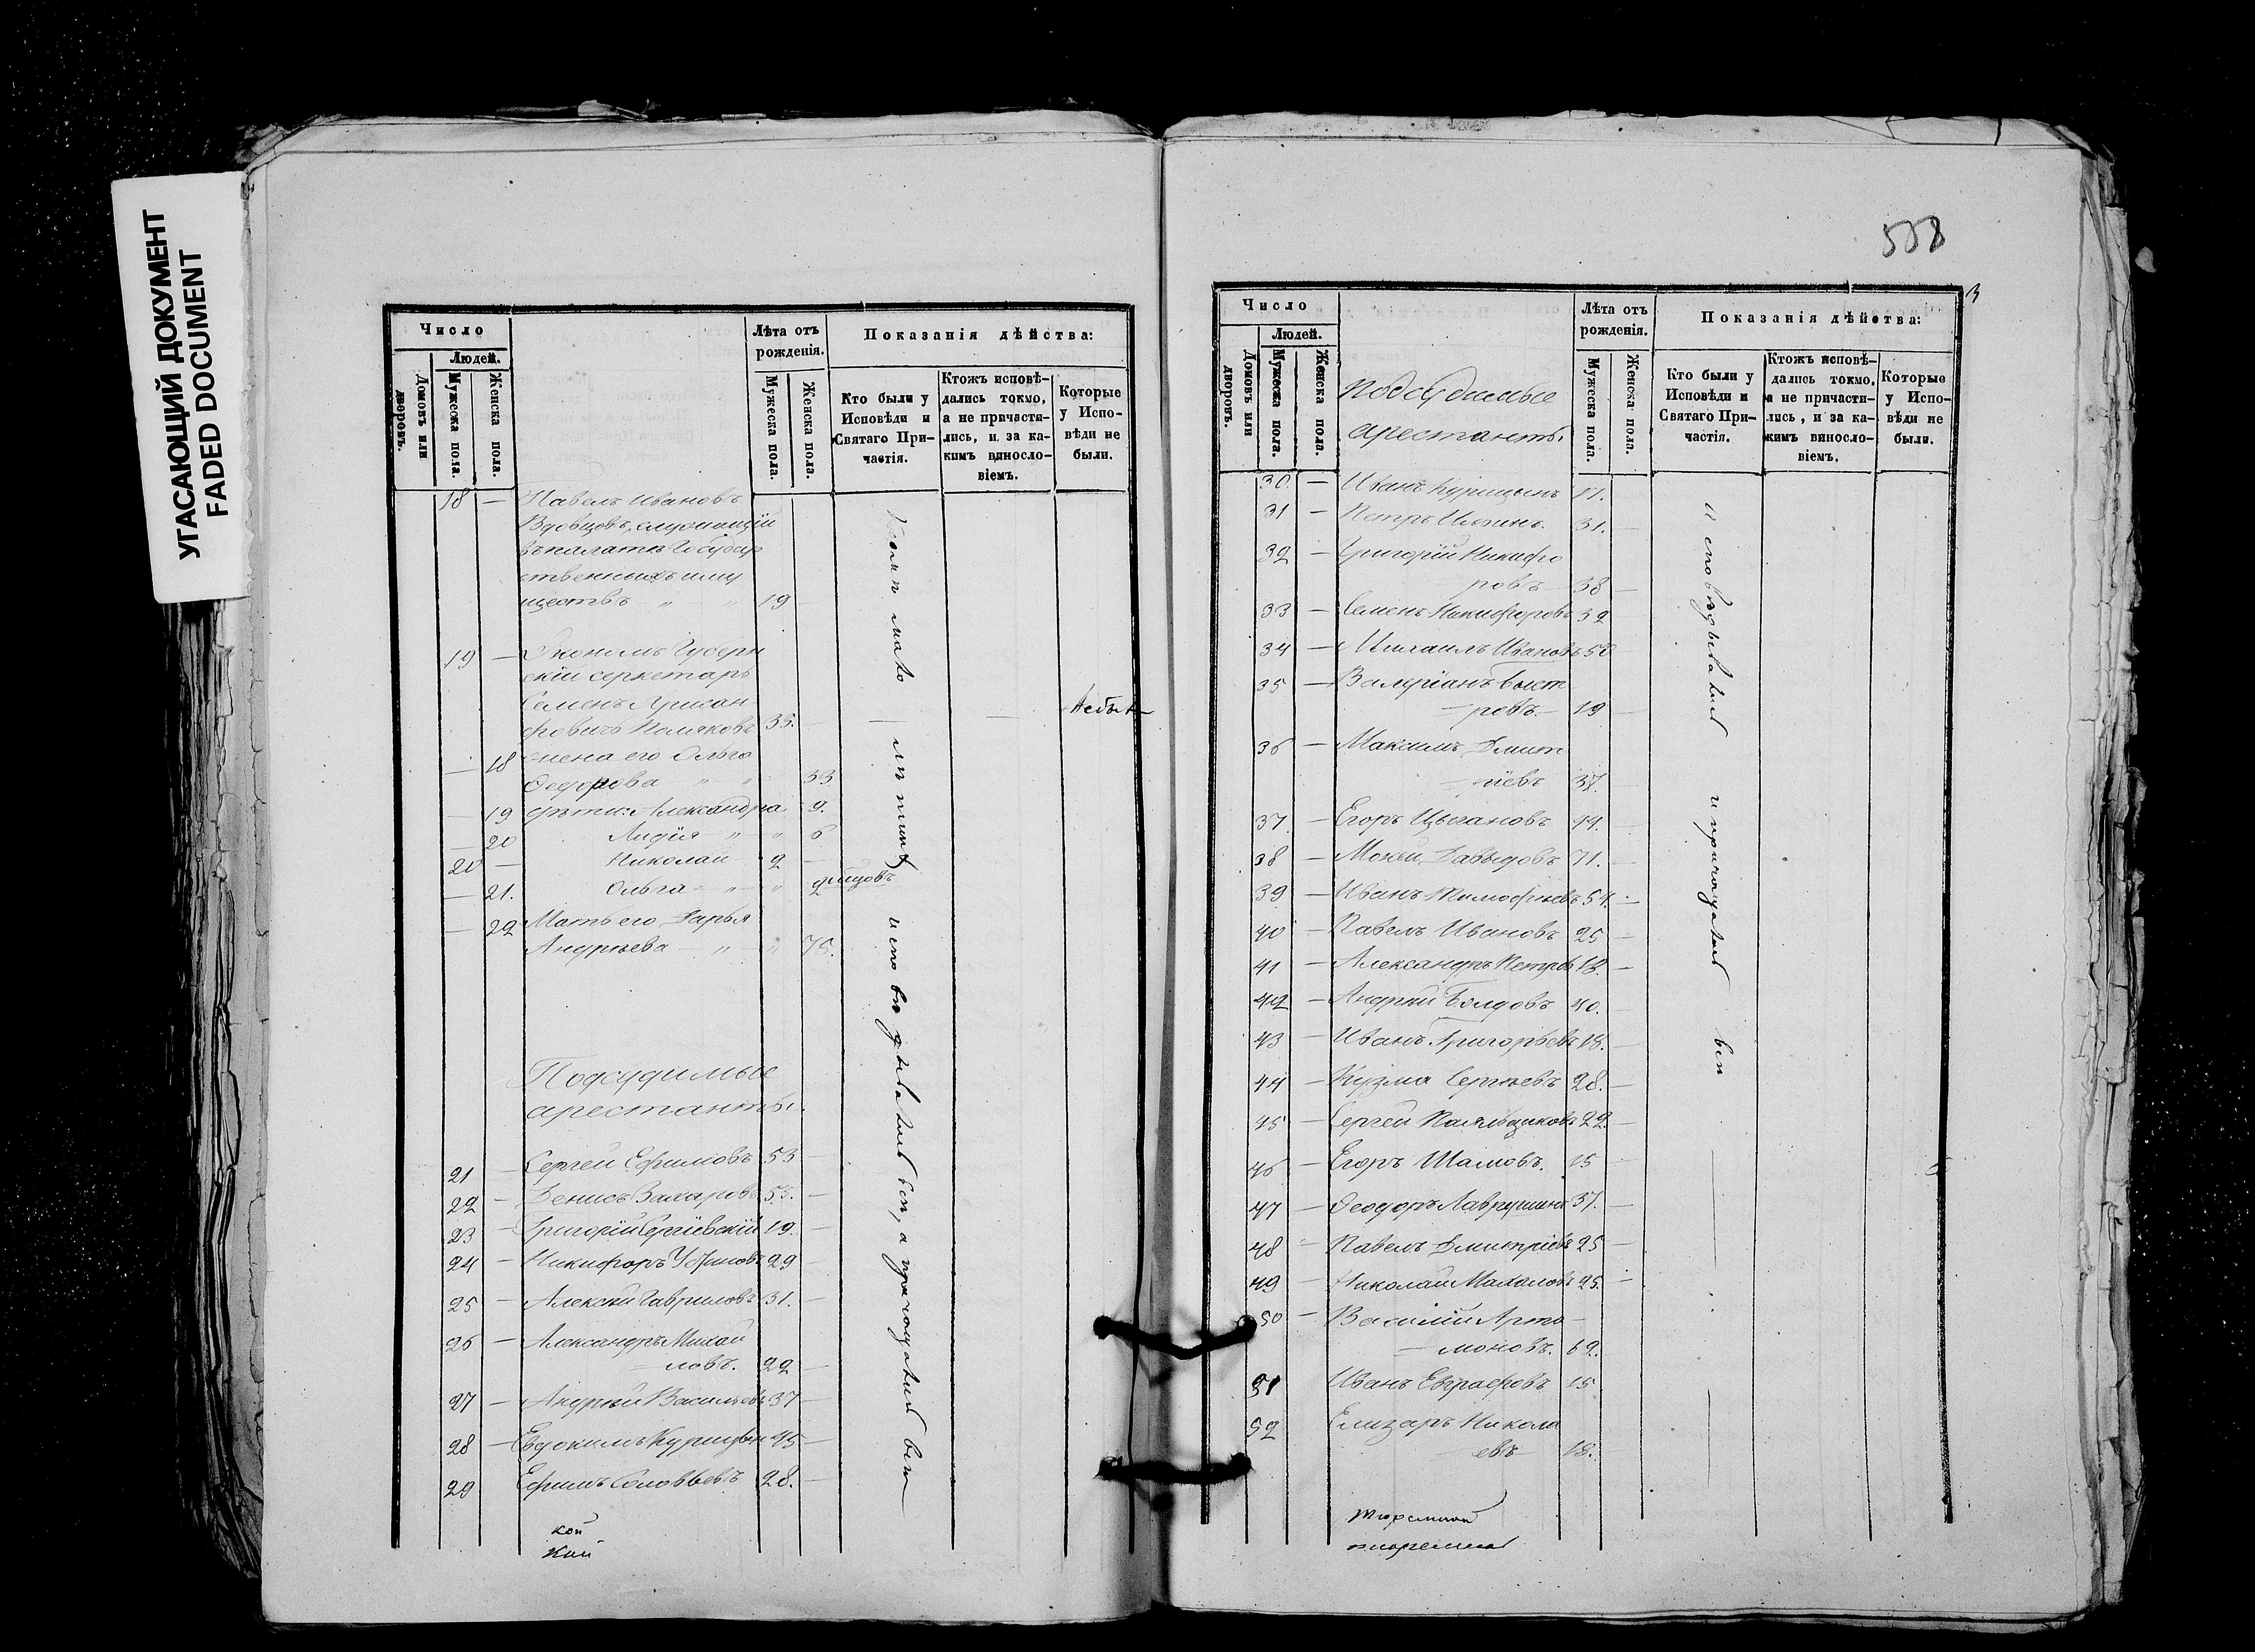 УГАСАЮЩИЙ ДОКУМЕНТ
FADED DOCUMENT
Число
Людей.
Домовъ или дворовъ.
Мужеска пола.
Женска пола.
Лѣта отъ рожденія.
Мужеска пола.
Женска пола.
Показанія дѣйства:
Кто были у Исповѣди и Святаго Причастія.
Ктожъ исповѣдались токмо, а не причастились, и за какимъ винословіемъ.
Которые у Исповѣди не были.
18 — Павелъ Ивановъ
Вдовцовъ, служащій
въ палатѣ Государ
ственныхъ иму
ществъ " " 19 —
19 — Экономъ Губерн
скій серкетарь
Семенъ Хрисан
фовичъ Поляковъ 35. — — Небылъ
— 18 жена его Ольга
Федорова " " 33
— 19 дѣти: Александра 9.
— 20 Лидія " " 6
20 — Николай 2 —
— 21. Ольга " " 2 мѣсцовъ
— 22 Мать его Дарья
Андреева " " 75.
Подсудимые
арестанты.
21 — Сергей Ефимовъ 53 —
22 — Денисъ Захаровъ 55. —
23 — Григорій Сергіевскій 19. —
24 — Никифоръ 29 —
25 — Алексѣй Гавриловъ 31. —
26 — Александръ Михай
ловъ. 22 —
27 — Андрей Васильевъ 37 —
28 — Евдокимъ Курицынъ 45 —
29 Ефимъ Соловьевъ 28. —
исповѣдывались всѣ, а причощались всѣ
кой
кой
538
3
Число
Людей.
Домовъ или дворовъ.
Мужеска пола.
Женска пола.
Подсудимые
арестанты.
Лѣта отъ рожденія.
Мужеска пола.
Женска пола.
Показанія дѣйства:
Кто были у Исповѣди и Святаго Причастія.
Ктожъ исповѣдались токмо, а не причастились, и за какимъ винословіемъ.
Которые у Исповѣди не были.
30 — Иванъ Курицынъ 17.
31 — Петръ Ильинъ. 31. —
32 — Григорій Никифо
ровъ 38 —
33 — Семенъ Никифоровъ 32
34 — Михаилъ Ивановъ 50
35 — Валеріанъ Быст
ровъ. 19 —
36 — Максимъ Дмит
ріевъ 38. —
37 — Егоръ Цыгановъ 44. —
38 — Мокей Давыдовъ 71. —
39 — Иванъ Тимофеевъ 54. —
40 — Павелъ Ивановъ 25 —
41 — Александръ Петровъ 18. —
42 — Андрей Болдовъ 40. —
43 — Иванъ Григорьевъ 18. —
44 — Кузма Сергеевъ 28. —
45 — Сергей 22. —
46 — Егоръ Шамовъ. 15 —
47 — Феодоръ Лаврушинъ 37. —
48 — Павелъ Дмитріевъ 25 —
49 — Николай Махаловъ 25. —
50 — Василій Арта-
моновъ. 62.
51 Иванъ Евграфовъ 15
52 Елизаръ Никола
евъ 18.
исповѣдывались и причощались всѣ
тюремной
тюремной